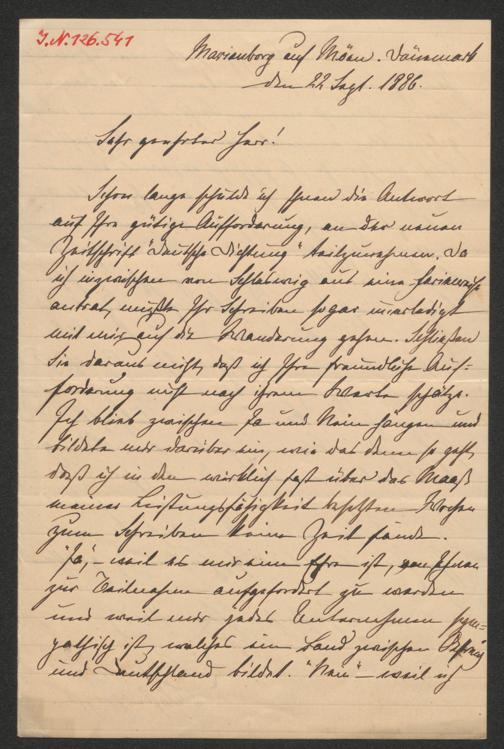 J.N. 126.541
Marienborg auf Möen. Dänemark
den 22 Sept. 1886.
Sehr geehrter Herr!
Schon lange schulde ich Ihnen die Antwort
auf Ihre gütige Aufforderung, an der neuen
Zeitschrift "Deutsche Dichtung" teilzunehmen. Da
ich inzwischen von Schleswig aus eine Ferienreise
antrat, mußte Ihr Schreiben sogar unerledigt
mit mir auf die Wanderung gehen. Schließen
Sie daraus nicht, daß ich Ihre freundliche Auf-
forderung nicht nach ihrem Werte schätze.
Ich blieb zwischen Ja und Nein hängen und
bildete mir darüber ein, wie das denn so geht,
daß ich in den wirklich fast über das Maaß
meiner Leistungsfähigkeit besetzten Wochen
zum Schreiben keine Zeit fände.
"Ja", - weil es mir eine Ehre ist, von Ihnen
zur Teilnahme aufgefordert zu werden
und weil mir jedes Unternehmen sym-
pathisch ist, welches ein Band zwischen
und Deutschland bildet. "Nein" - weil ich